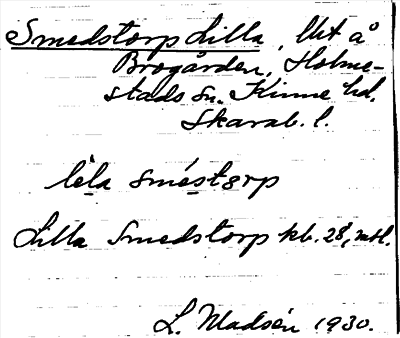 Smedstorp Lilla, Ut å
Brogården, Holme-
stads sn. Kinne hd.
Skarab. l.
lela smestorp
Lilla Smedstorp kb. 28, mtl.
L. Madsén 1930.